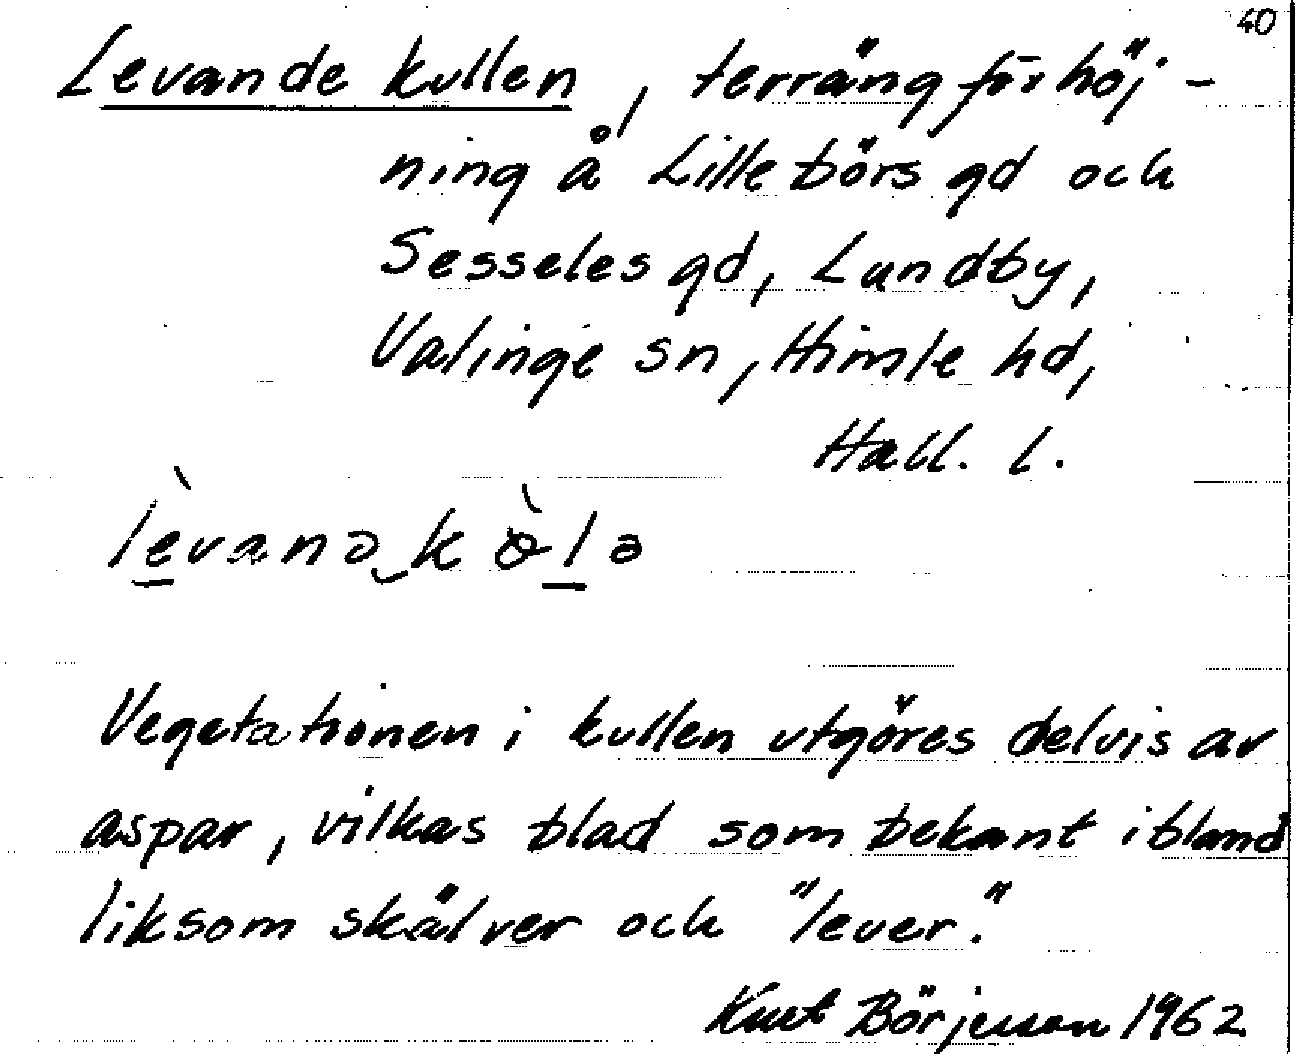 40
Levande kullen, terrängförhöj-
ning å Lillebörs gd och
Sesseles gd, Lundby,
Valinge sn, Himle hd,
Hall. l.
lèvanə‿kɵ̀lə
Vegetationen i kullen utgöres delvis av
aspar, vilkas blad som bekant ibland
liksom skälver och "lever."
Kurt Börjesson 1962